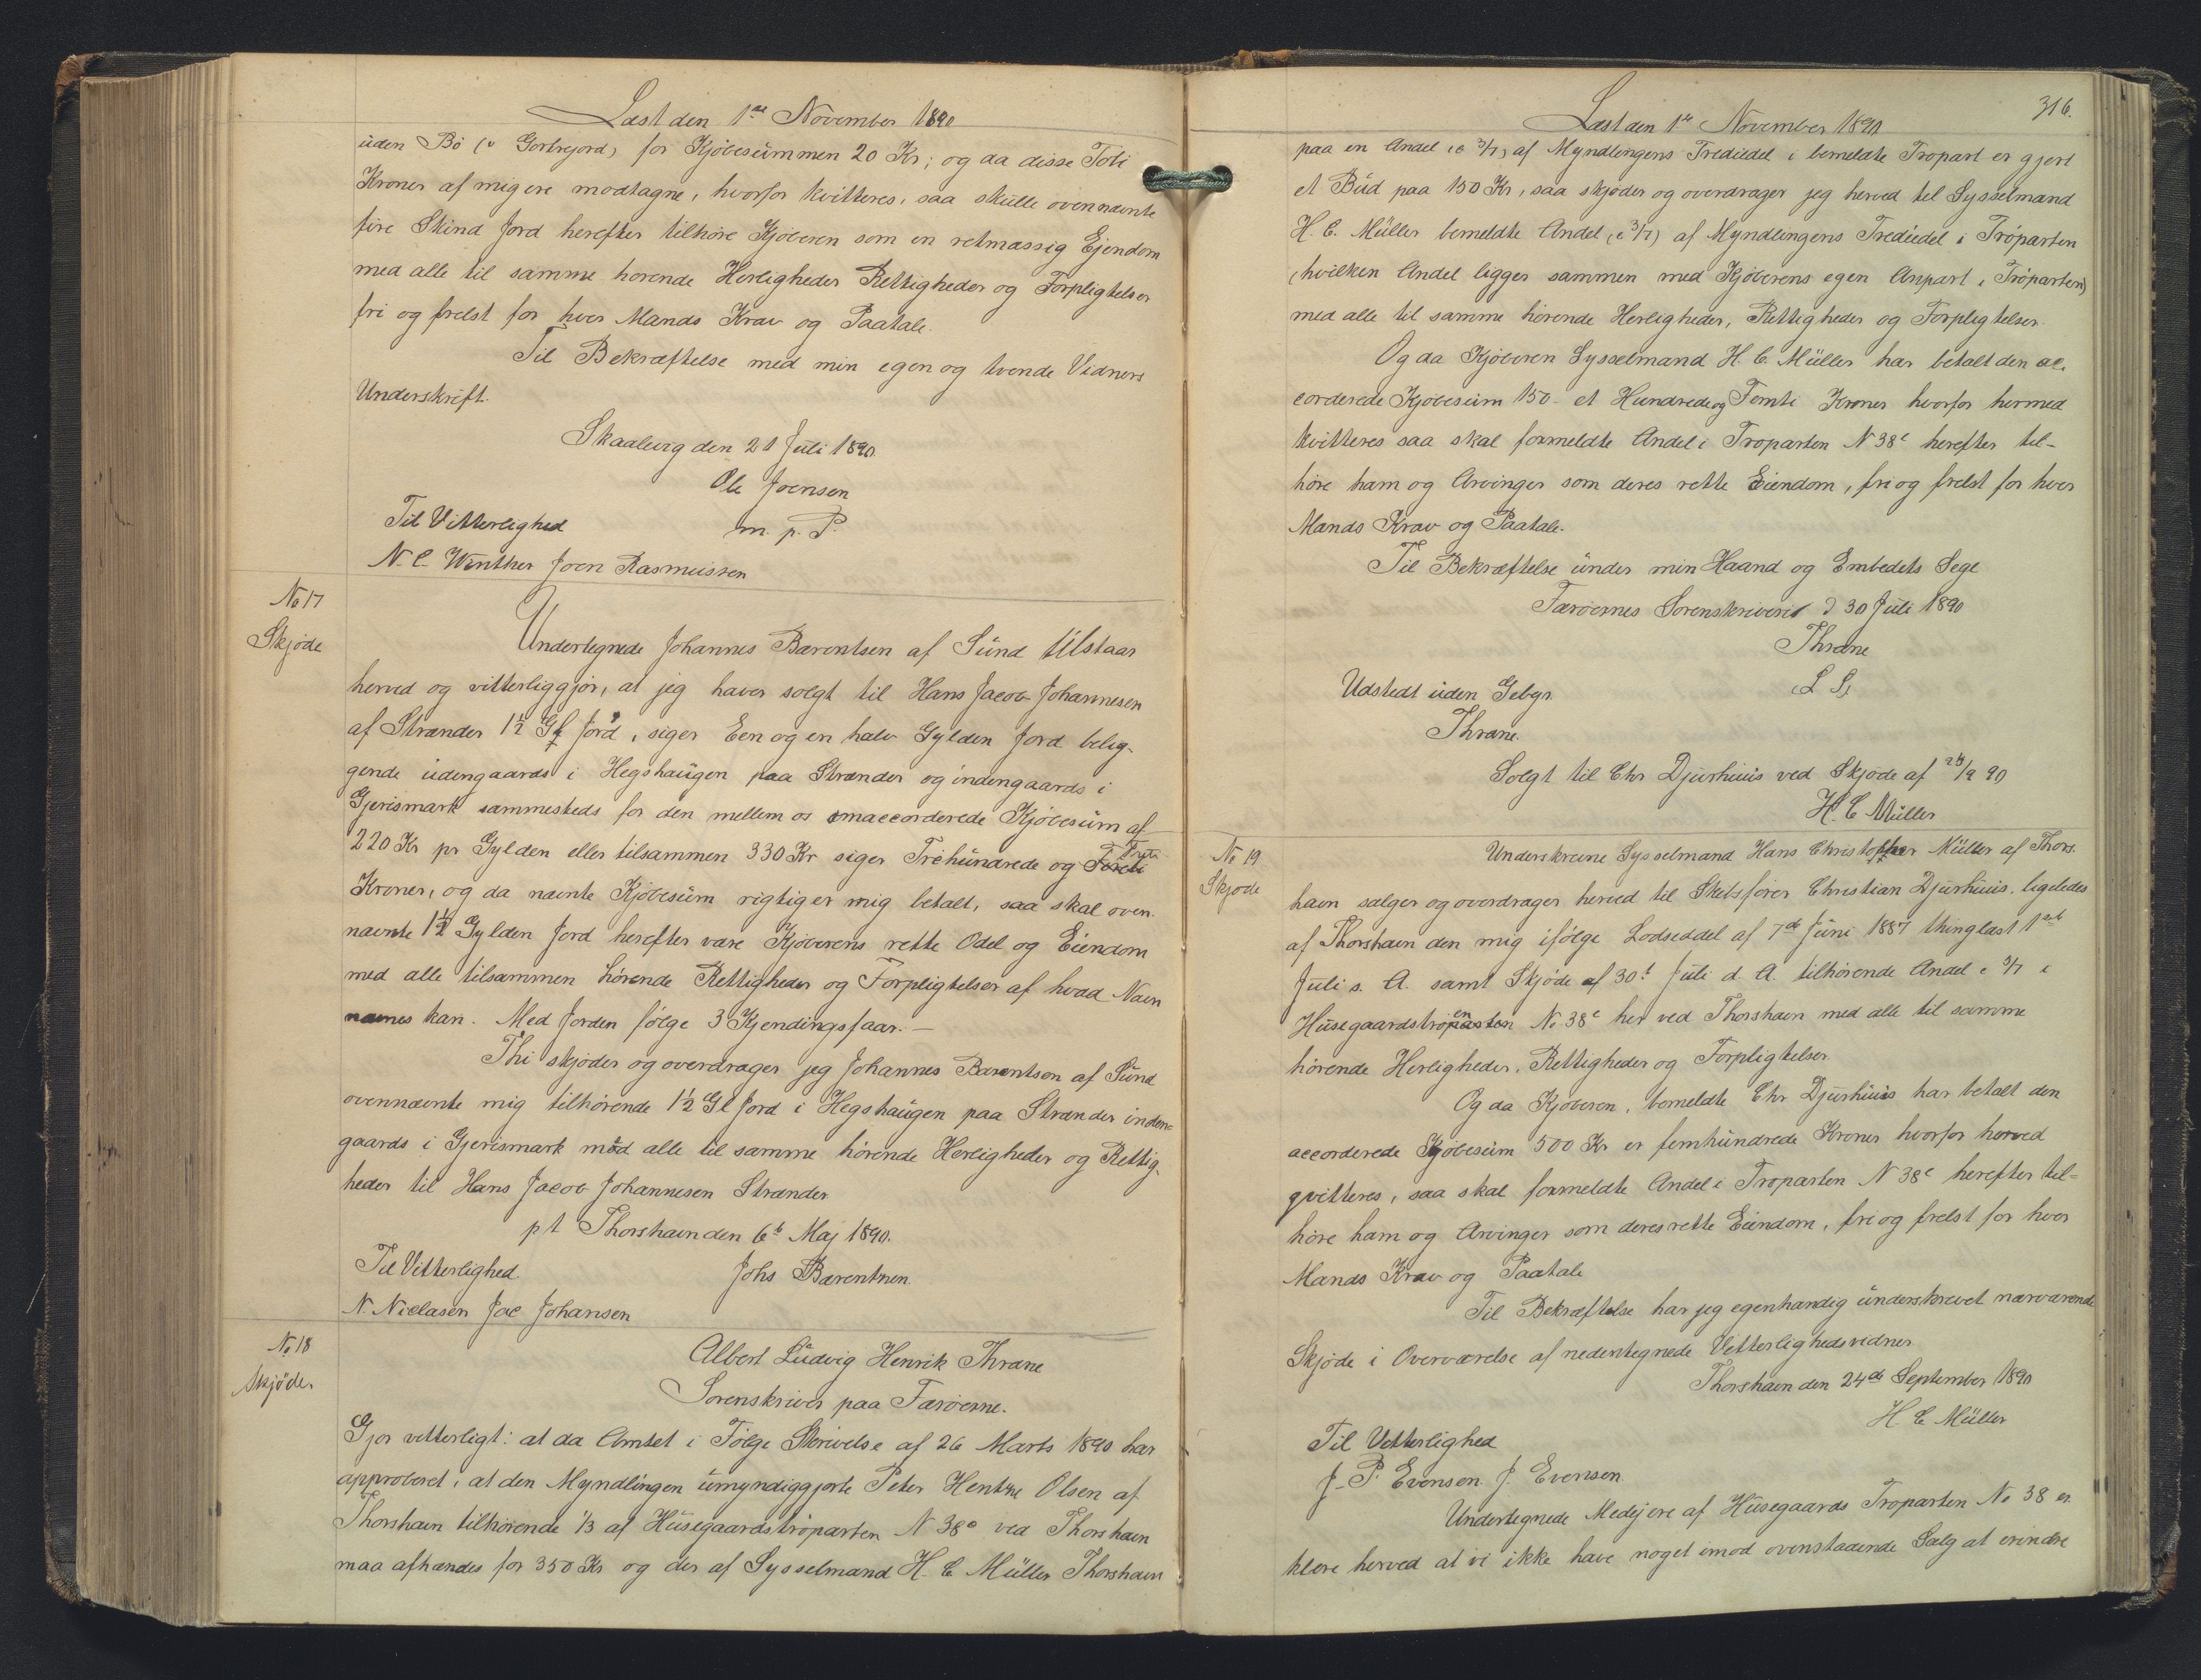 Læst den 1ste November 1890
uden Bö (o: Gortrejord) for Kjöbesummen 20 Kr; og da disse Toti
Kroner af mig ere modtagne, hvorfor kvitteres, saa skulle ovennævnte
fire Skind Jord herefter tilhöre Kjöberen som en retmæssig Ejendom
med alle til samme horende Herligheder Rettigheder og Forpligtelser
fri og frelst for hver Mands Krav og Paatale.
Til Bekræftelse med min egen og tvende Vidners
Underskrift.
Skaalevig den 21 Juli 1890.
Ole Joensen
Til Vitterlighed m. p. P.
N. C. Winther Joen Rasmussen
No 17
Skjöde
Undertegnede Johannes Barentsen af Sund tilstaar
herved og vitterliggjör, at jeg haver solgt til Hans Jacob Johannesen
af Strænder 1½ Gl Jord, siger Een og en halv Gylden Jord belig-
gende udengaards i Hegshaugen paa Strænder og indengaards i
Gjerismark sammesteds for den mellem os omaccorderede Kjöbesum af
220 Kr pr Gylden eller tilsammen 330 Kr siger Trehundrede og Treti
Kroner, og da nævnte Kjöbesum rigtig er mig betalt, saa skal oven-
nævnte 1½ Gylden Jord herefter være Kjöberens rette Odel og Eiendom
med alle tilsammen hörende Rettigheder og Forpligtelser af hvad Navn
nævnes kan. Med Jorden fölge 3 Kjendingsfaar.—
Thi skjöder og overdrager jeg Johannes Barentsen af Sund
ovennævnte mig tilhörende 1½ Gl Jord i Hegshaugen paa Strænder inden-
gaards i Gjerismark med alle til samme hörende Herligheder og Rettig-
heder til Hans Jacob Johannesen Strænder
pt Thorshavn den 6t Maj 1890.
Til Vitterlighed. Johs Barentsen.
N. Niclasen Jac Johansen
No 18
Skjöde.
Albert Ludvig Henrik Thrane
Sorenskriver paa Færöerne.
Gjör vitterligt: at da Amtet i Fölge Skrivelse af 26 Marts 1890 har
approberet, at den Myndlingen umyndiggjorte Peter Olsen af
Thorshavn tilhörende 1/3 af Husegaardströparten N 38c ved Thorshavn
maa afhændes for 350 Kr og der af Sysselmand H. C Müller Thorshavn
316.
Læst den 1ste November 1890
paa en Andel (o: 3/7) af Myndlingens Trediedel i bemeldte Tropart er gjort
et Bud paa 150 Kr, saa skjöder og overdrager jeg herved til Sysselmand
H. C. Müller bemeldte Andel (o: 3/7) af Myndlingens Trediedel i Tröparten
(hvilken Andel ligger sammen med Kjöberens egen Anpart i Tröparten)
med alle til samme hörende Herligheder, Rettigheder og Forpligtelser.
Og da Kjöberen Sysselmand H. C. Müller har betalt den ac-
corderede Kjöbesum 150 - et Hundrede og Femti Kroner hvorfor hermed
kvitteres saa skal formeldte Andel i Troparten N 38c herefter til-
höre ham og Arvinger som deres rette Eiendom, fri og frelst for hver
Mands Krav og Paatale.
Til Bekræftelse under min Haand og Embedets Segl
Færöernes Sorenskriveri d 30 Juli 1890
Thrane
Udstedt uden Gebyr. (L S)
Thrane.
Solgt til Chr Djurhuus ved Skjöde af 24/9 90
H. C Müller
No 19
Skjöde
Underskrevne Sysselmand Hans Christopher Müller af Thors-
havn sælger og overdrager herved til Skibsförer Christian Djurhuus, ligeledes
af Thorshavn den mig ifölge Lodseddel af 7de Juni 1887 thinglæst 1ste
Juli s. A. samt Skjöde af 30t Juli d. A. tilhörende Andel o: 3/7 i
Husegaardströparten No 38c her ved Thorshavn med alle til samme
hörende Herligheder, Rettigheder og Forpligtelser.
Og da Kjöberen, bemeldte Chr Djurhuus har betalt den
accorderede Kjöbesum 500 Kr er femhundrede Kroner hvorfor herved
qvitteres, saa skal formeldte Andel i Troparten N 38c herefter til-
höre ham og Arvinger som deres rette Eiendom, fri og frelst for hver
Mands Krav og Paatale
Til Bekræftelse har jeg egenhændig underskrevet nærværende
Skjöde i Overværelse af nedentegnede Vitterlighedsvidner
Thorshavn den 24de September 1890
H C Müller
Til Vitterlighed
J. P. Evensen. J. Evensen.
Undertegnede Medejere af Husegaards Troparten No 38 er-
klære herved at vi ikke have noget imod ovenstaaende Salg at erindre